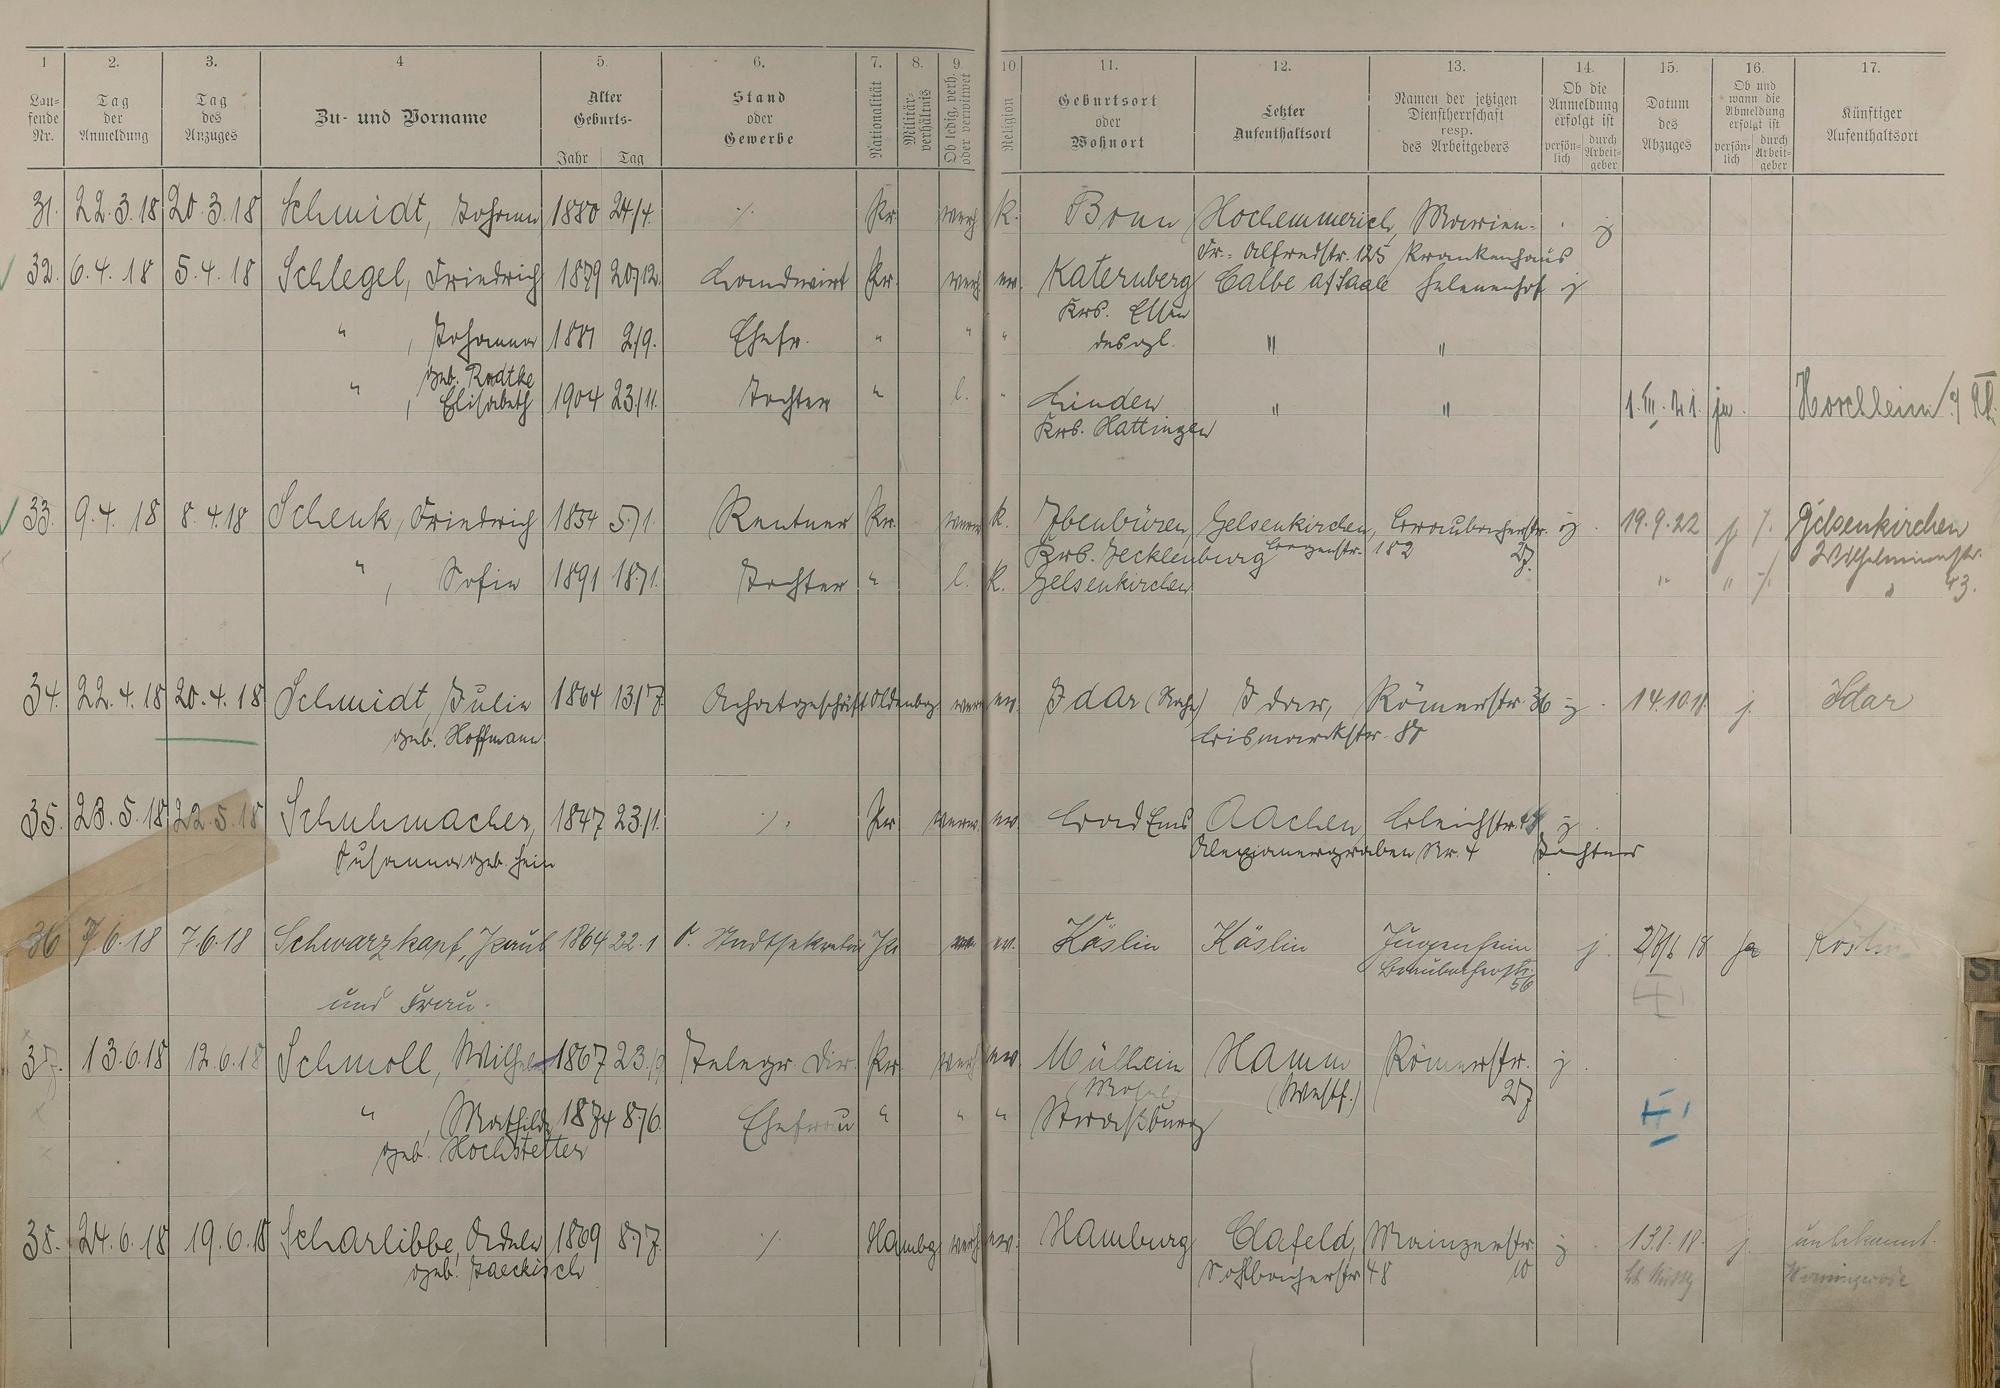 1 2. 3. 4 5. 6. 7. 8. 9. 10. 11. 12. 13. 14. 15. 16. 17.
Lau-
fende
Nr.
Tag
der
Anmeldung
Tag
des
Anzuges
Zu- und Vorname
Alter
Geburts-
Jahr Tag
Stand
oder
Gewerbe
Nationalität
Militär-
verhältnis
Ob ledig, verh.
oder verwitwet
Religion
Geburtsort
oder
Wohnort
Letzter
Aufenthaltsort
Namen der jetzigen
Dienstherrschaft
resp.
des Arbeitgebers
Ob die
Anmeldung
erfolgt ist
persön-
lich
durch
Arbeit-
geber
Datum
des
Abzuges
Ob und
wann die
Abmeldung
erfolgt ist
persön-
lich
durch
Arbeit-
geber
Künftiger
Aufenthaltsort
31. 22.3.18 20.3.18 Schmidt, Johann 1880 24/4. ./. Pr. verh. k. Bonn Hochemmerich, Marien- j
Fr.- Alfredstr. 125 Krankenhaus
32. 6.4.18 5.4.18 Schlegel, Friedrich 1879 20/12. Landwirt Pr. verh. ev. Katernberg Calbe a/Saale Helenenhof j
Krs. Essen
" , Johanna 1881 2/9. Ehefr. " " " desgl. " "
geb. Radtke
" , Elisabeth 1904 23/11. Tochter " l. " Linden " " 1.VII.21. ja. Horchheim a/ Rh.
Krs. Hattingen
33. 9.4.18 8.4.18 Schenk, Friedrich 1854 5/1. Rentner Pr. verw. k. Ibenbüren Gelsenkirchen, Braubacherstr. j. 19.9.22 j Gelsenkirchen
Krs. Tecklenburg 182 27. Wilhelminenstr.
" , Sofie 1891 18/1. Tochter " l. k. Gelsenkirchen " " " 43.
34. 22.4.18 20.4.18 Schmidt, Julie 1864 13/7. Achatgeschäft Oldenbg. verw. ev. Idar (Nahe) Idar, Römerstr. 36 j. 14.10.18 j. Idar
geb. Hoffmann Bismarckstr. 87
35. 23.5.18 22.5.18 Schuhmacher, 1847 23/1. ./. Pr. verw. ev. Bad Ems Aachen Bleichstr. j
Susanna geb. Hein Alexianergraben Nr. 4 Tochter
36 7/6.18 7.6.18 Schwarzkopf, Paul 1864 22.1 Stadtsekretär Pr ev. Köslin Köslin Jugenheim j. 18 ja Köslin
Braubacherstr.
56
und Frau.
37. 13.6.18 12.6.18 Schmoll, Wilhelm 1867 23/9 Telegr. Dir. Pr. verh. ev. Müllein Hamm Römerstr. j.
(Mosel) (Westf.) 27
" , Mathilde 1874 8/6. Ehefrau " " " Strassburg
geb. Hochstetter
38. 24.6.18 19.6.18 Scharlibbe, Adele 1869 8/7. ./. Hambg. verh. ev. Hamburg Clafeld, Mainzerstr. j 13.8.18. j. unbekannt.
geb. Jaeckisch 48 10